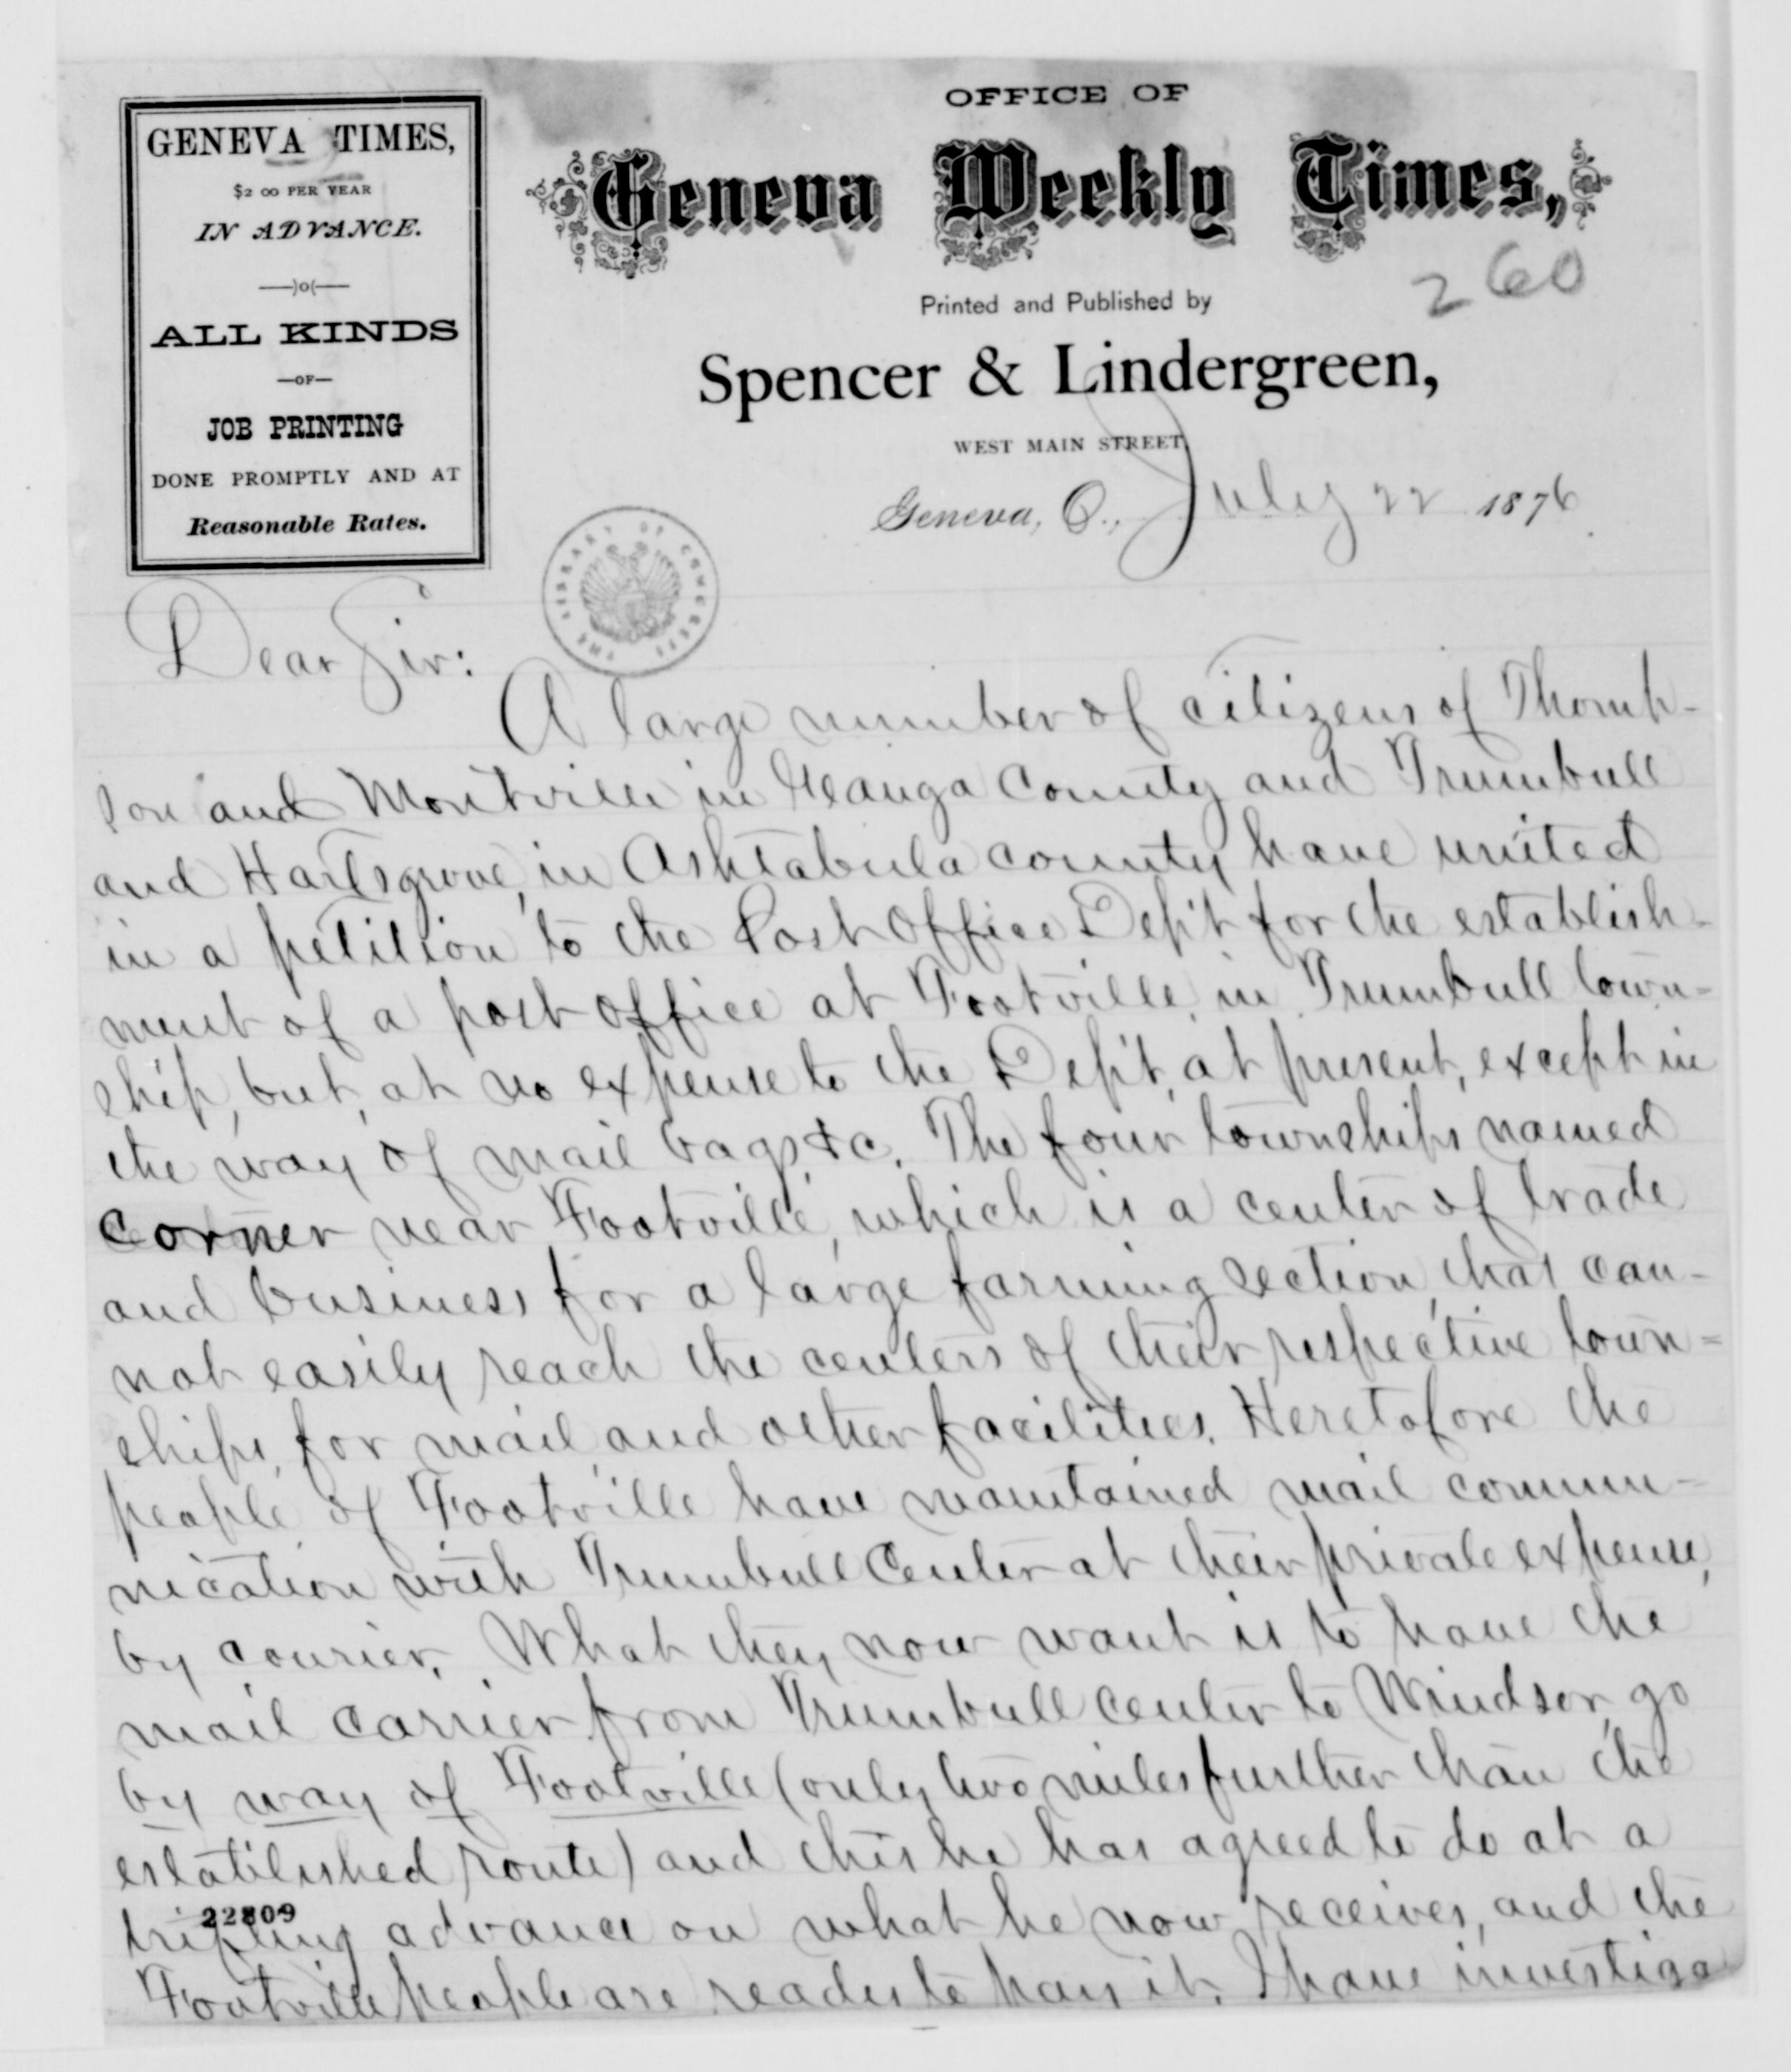 GENEVA TIMES,
$2 00 PER YEAR
IN ADVANCE.
—)o(—
ALL KINDS
—OF—
JOB PRINTING
DONE PROMPTLY AND AT
Reasonable Rates.
OFFICE OF
Geneva Weekly Times,
260
Printed and Published by
Spencer & Lindergreen,
WEST MAIN STREET,
Geneva, O., July 22 1876.
THE LIBRARY OF CONGRESS
Dear Sir:
A large number of citizens of Thomp-
son and Montville in Geauga County and Trumbull
and Hartsgrove, in Ashtabula county have united
in a petition to the Post Office Dep't for the establish-
ment of a post office at Footville, in Trumbull town-
ship, but, at no expense to the Dep't, at present, except in
the way of mail bags &c. The four townships named
corner near Footville, which is a center of trade
and business for a large farming section, that can-
not easily reach the centers of their respective town-
ships, for mail, and other facilities. Heretofore the
people of Footville have maintained mail commu-
nication with Trumbull Center at their private expense,
by courier. What they now want is to have the
mail carrier from Trumbull center to Windsor, go
by way of Footville (only two miles further than the
established route) and this he has agreed to do at a
22809
trifling advance on what he now receives, and the
Footville people are ready to pay it. I have investiga